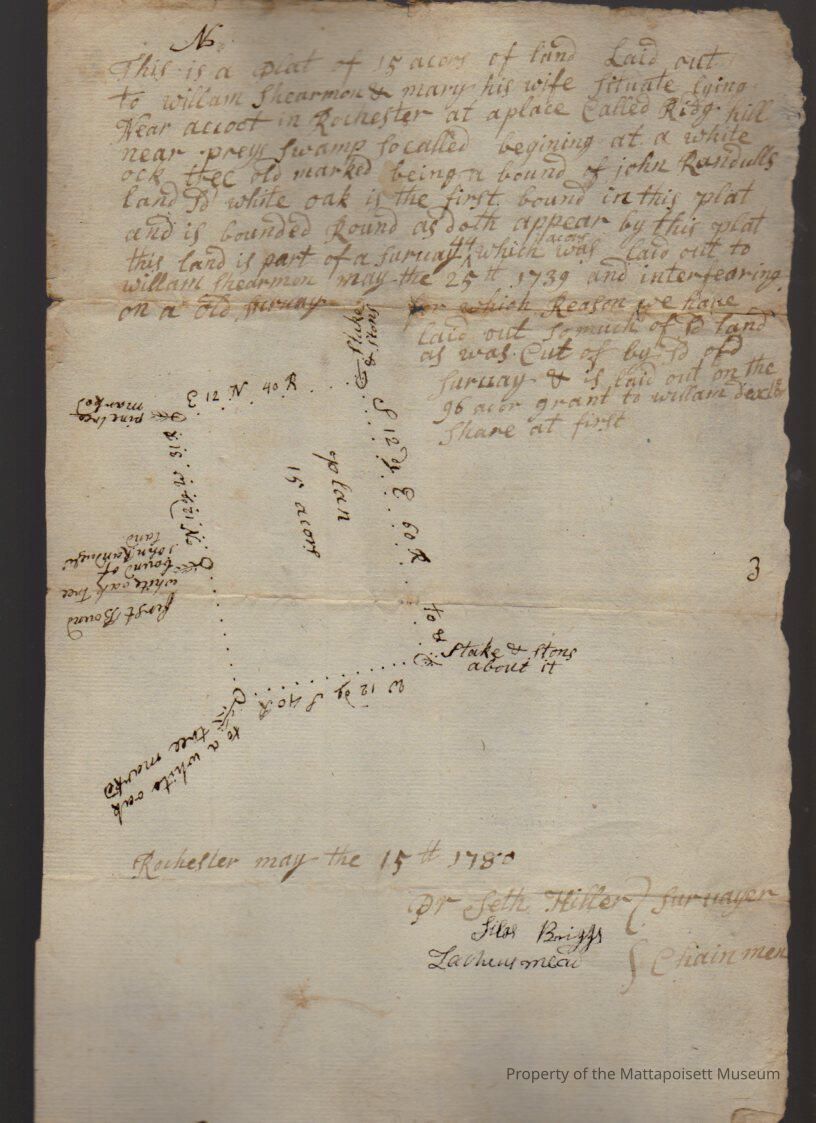 N
This is a plat of 15 acors of land Laid out
to willam Shearmon & mary his wife situate lying
Near accoot in Rochester at aplace Called Ridg hill
near preys swamp so called begining at a white
ock tree old marked being a bound of john Randulls
land Sd white oak is the first bound in this plat
and is bounded Round as doth appear by this plat
this land is part of a survay 44 acors which was laid out to
willam shearmon may the 25th 1739 and interfearing
on a old survay for which Reason we have
laid out so much of Sd land
as was Cut of by Sd old
survay & is laid out on the
96 acor grant to willam dexter
share at first
Stake
& stons
E 12 N 40 R
pine tree
marked
S 12 dg E 60 R
plan
15 acors
first Bound
white oak tree
bound of
john Randulls
land
3
to a
Stake & stons
about it
W 12 dg S 40 R
to a white oak
tree marked
Rochester may the 15th 1780
Pr Seth Hiller survayer
Silas Briggs
Zacheus mead Chain men
Property of the Mattapoisett Museum